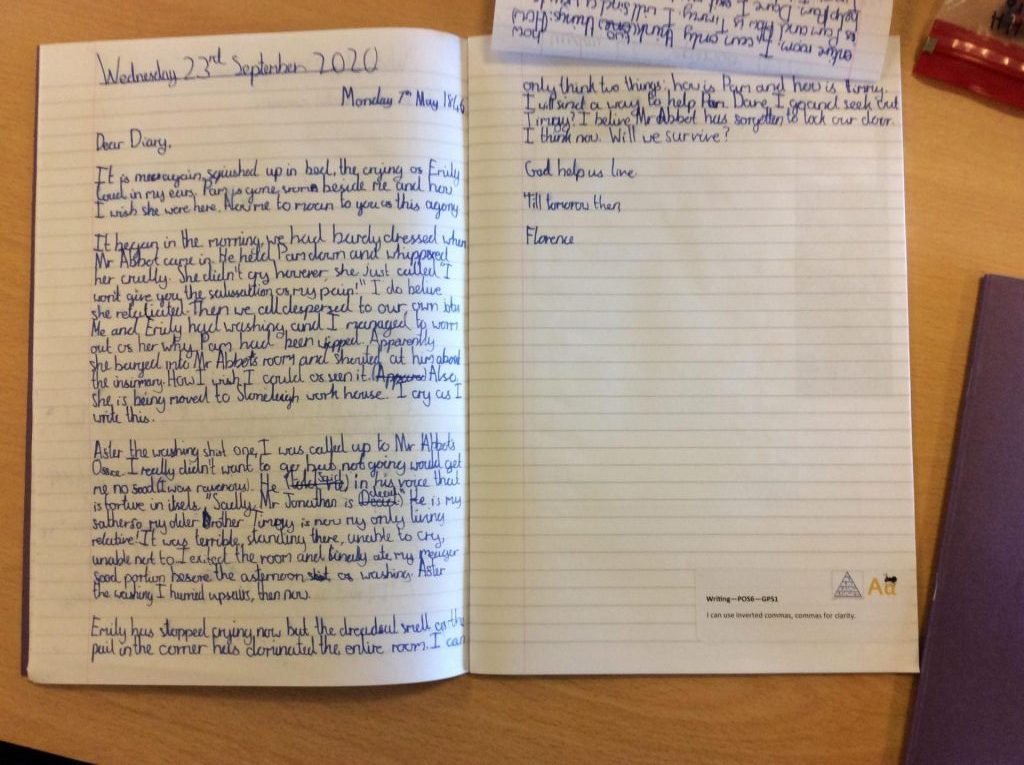 Wednesday 23rd September 2020
Monday 7th May 1846
Dear Diary,
It is me again, squished up in bed, the crying of Emily
loud in my ears. Pam is gone, beside me and how
I wish she were here. Alow me to moan to you of this agony
It began in the morning, we had bardy dressed when
Mr Abbot came in. He held Pam down and whipped
her cruelly. She didn't cry however she just called "I
won't give you the satisfattion of my pain!" I do belive
she Then we all despersed to our own jobs
Me and Emily had washing and I managed to worm
out of her why Pam had been wipped. Apparently
she barged into Mr Abbots room and shouted at him about
the infirmary. How I wish I could of seen it. Also
she is being moved to Stoneleigh work house. I cry as I
write this.
After the washing shift one, I was called up to Mr Abbots
Office. I really didn't want to go, but not going would get
me no food (I was ravenous). He said in his voice that
is torture in itself, "Sadly, Mr Jonathan is deceised" He is my
father so my older Brother Timmy is now my only living
relative! It was terrible, standing there, unable to cry,
unable not to. I exited the room and finally ate my meager
food portion before the afternoon shift of washing. After
the washing I hurried upstairs, then now.
Emily has stopped crying now but the dreadful smell of the
pail in the corner has dominated the entire room. I can
only think two things; how is Pam and how is Timmy.
I will find a way to help Pam. Dare I go and seek out
Timmy? I belive Mr Abbot has forgotten to lock our door.
I think now. Will we survive?
God help us live
'Till tomorow then
Florence
Writing—POS6—GPS1
I can use inverted commas, commas for clarity.
Aa